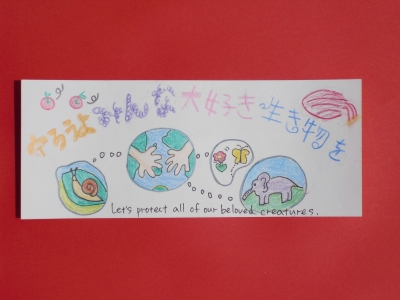 守ろうよみんな大好き生き物を
Let's protect all of our beloved creatures.